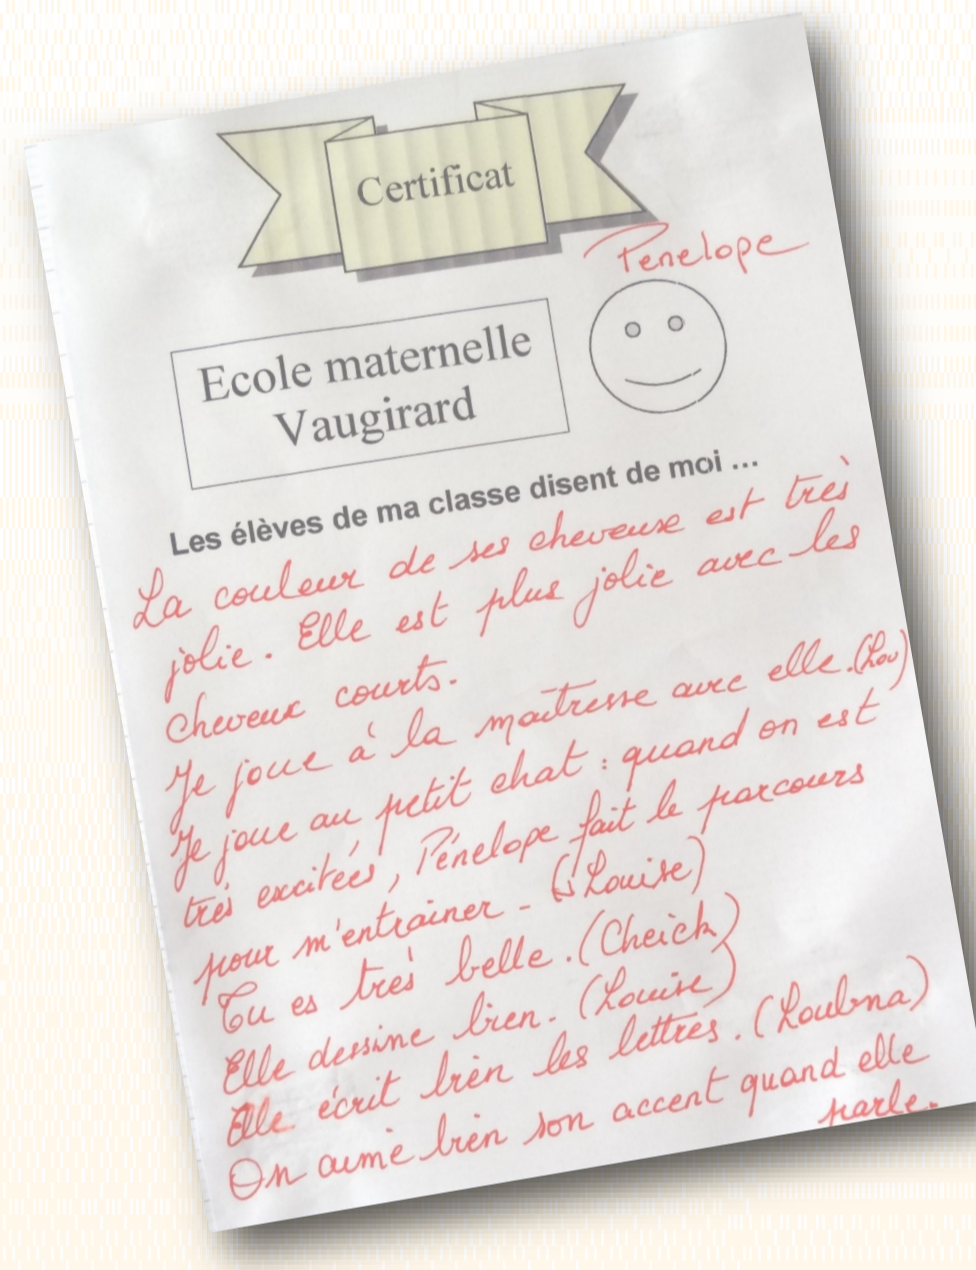 Certificat
Penelope
Ecole maternelle
Vaugirard
Les élèves de ma classe disent de moi ...
La couleur de ses cheveux est très
jolie. Elle est plus jolie avec les
cheveux courts.
Je joue à la maitresse avec elle. (Lou)
Je joue au petit chat : quand on est
très excitées, Pénelope fait le parcours
pour m'entrainer - (Louise)
Tu es très belle. (Cheick)
Elle dessine bien. (Louise)
Elle écrit bien les lettres. (Loubna)
On aime bien son accent quand elle
parle.